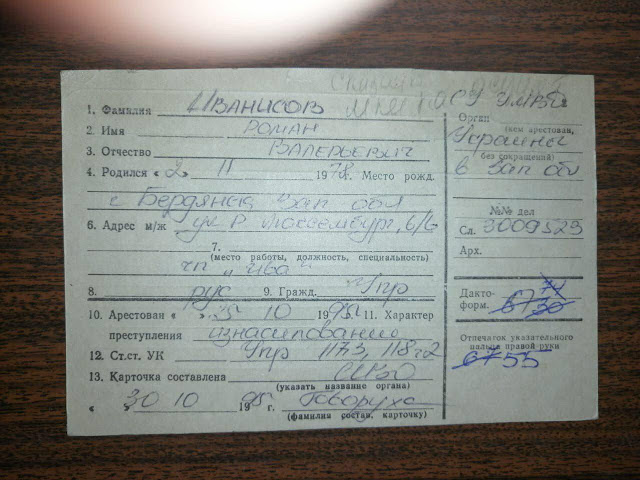 1. Фамилия Иванисов
2. Имя Роман
3. Отчество Валерьевич
4. Родился « 2 11 197 г. Место рожд.
г. Бердянск Зап обл
6. Адрес м/ж ул Р Люксембург, 6/6
7.
(место работы, должность, специальность)
чп „Ива“
8. рус 9. Гражд. Укр
10. Арестован « » 25 10 1995 г. 11. Характер
преступления изнасилование
12. Ст.ст. УК Укр 117 3, 118 ч2
13. Карточка составлена СИЗО
(указать название органа)
« 30 10 1995 г. Говоруха
(фамилия состав. карточку)
ОСУ УМВД
Орган
(кем арестован,
Украины
без сокращений)
в Зап обл
№№ дел
Сл. 3009529
Арх.
Дакто-
форм. 6730
Отпечаток указательного
пальца правой руки
6755